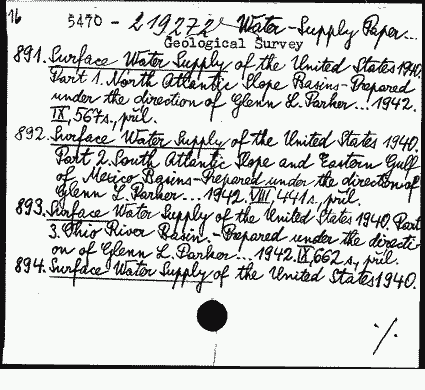 16 5470 - 219272 Water-Supply Paper...
Geological Survey
891. Surface Water Supply of the United States 1940.
Part 1. North Atlantic Slope Basins-Prepared
under the direction of Glenn L. Parker... 1942.
IX, 567 s., pril.
892. Surface Water Supply of the United States 1940.
Part 2. South Atlantic Slope and Eastern Gulf
of Mexico Basins-Prepared under the direction of
Glenn L. Parker... 1942. VIII, 441 s., pril.
893. Surface Water Supply of the United States 1940. Part
3. Ohio River Basin.-Prepared under the directi-
on of Glenn L. Parker... 1942. IX, 662 s., pril.
894. Surface Water Supply of the United States 1940.
·/.